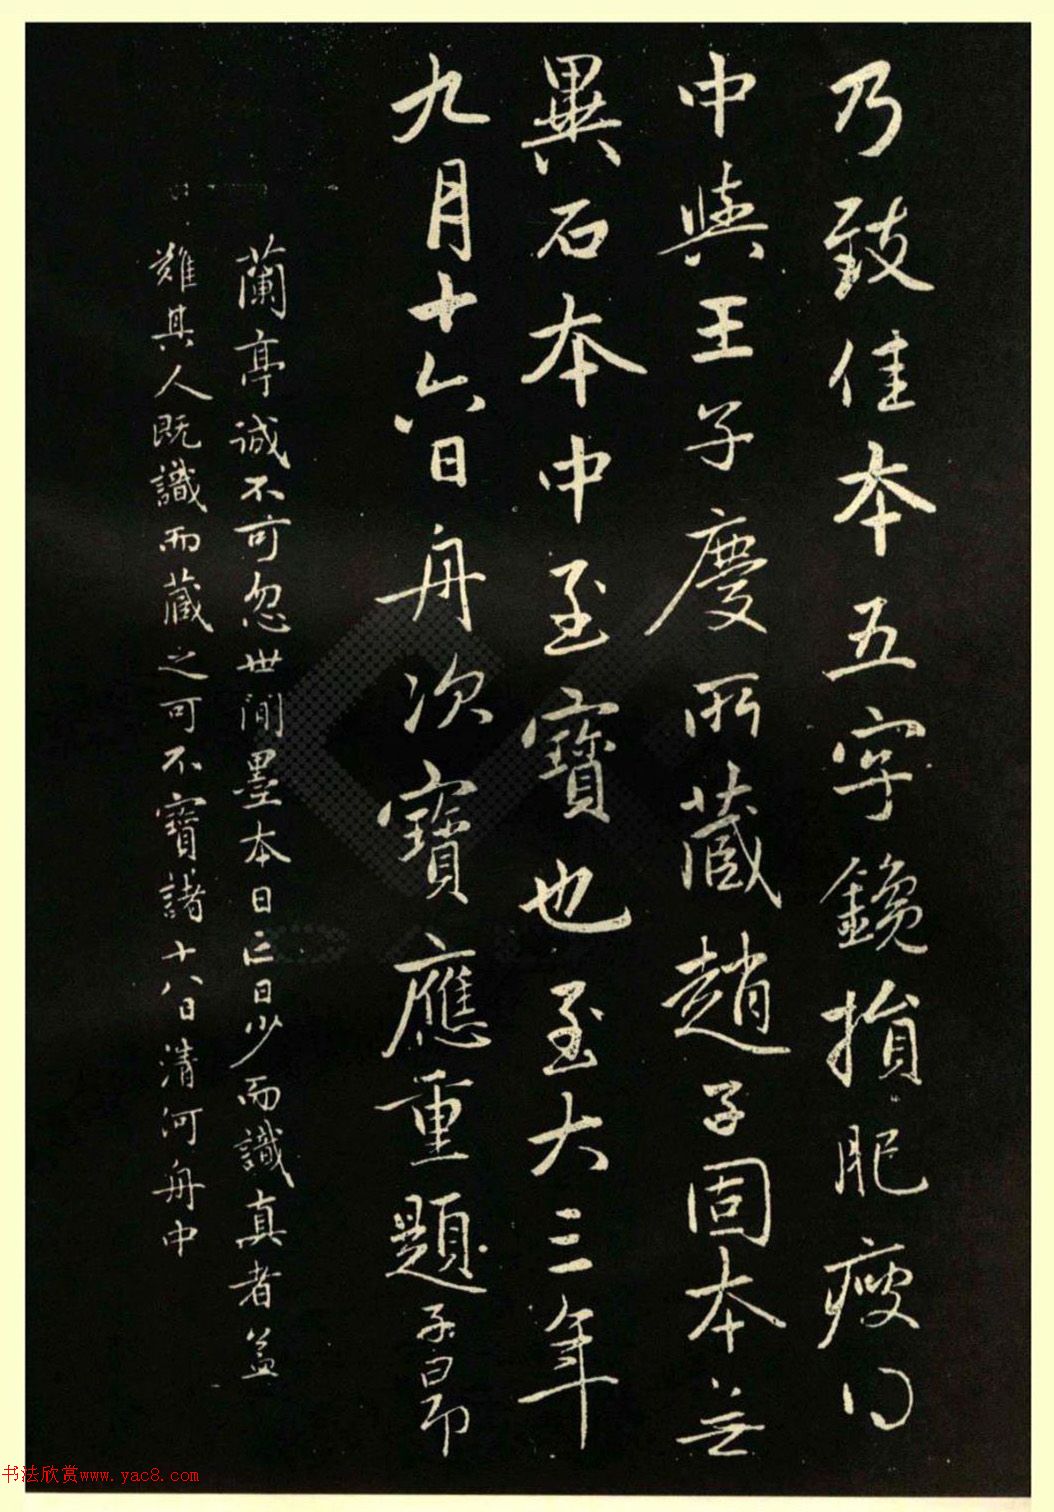 乃致佳本五字鑱損肥瘦得
中與王子慶所藏趙子固本無
異石本中至寶也至大三年
九月十六日舟次寶應重題子昂
蘭亭誠不可忽世間墨本日亡日少而識真者益
難其人既識而藏之可不寶諸十八日清河舟中
书法欣赏www.yac8.com